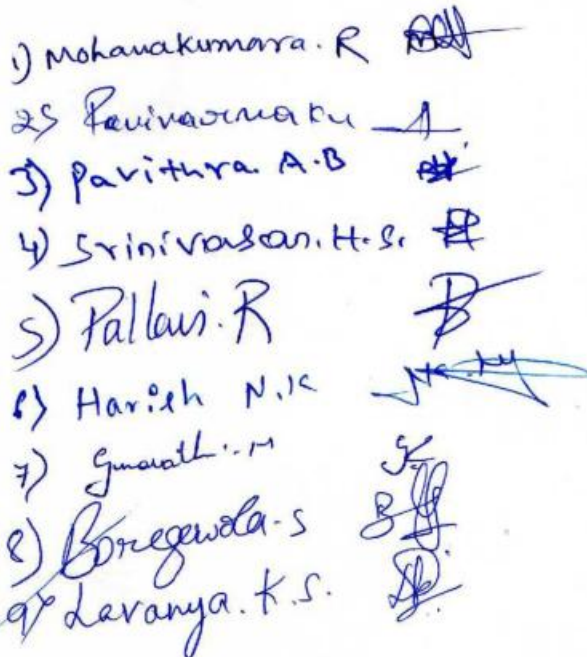 1) Mohanakumara. R
2) Ravivarma Ku
3) Pavithra. A.B
4) Srinivasan. H.S.
5) Pallavi. R
6) Harish N.K
7) M
8) Boregowda. S
9) Lavanya. K.S.